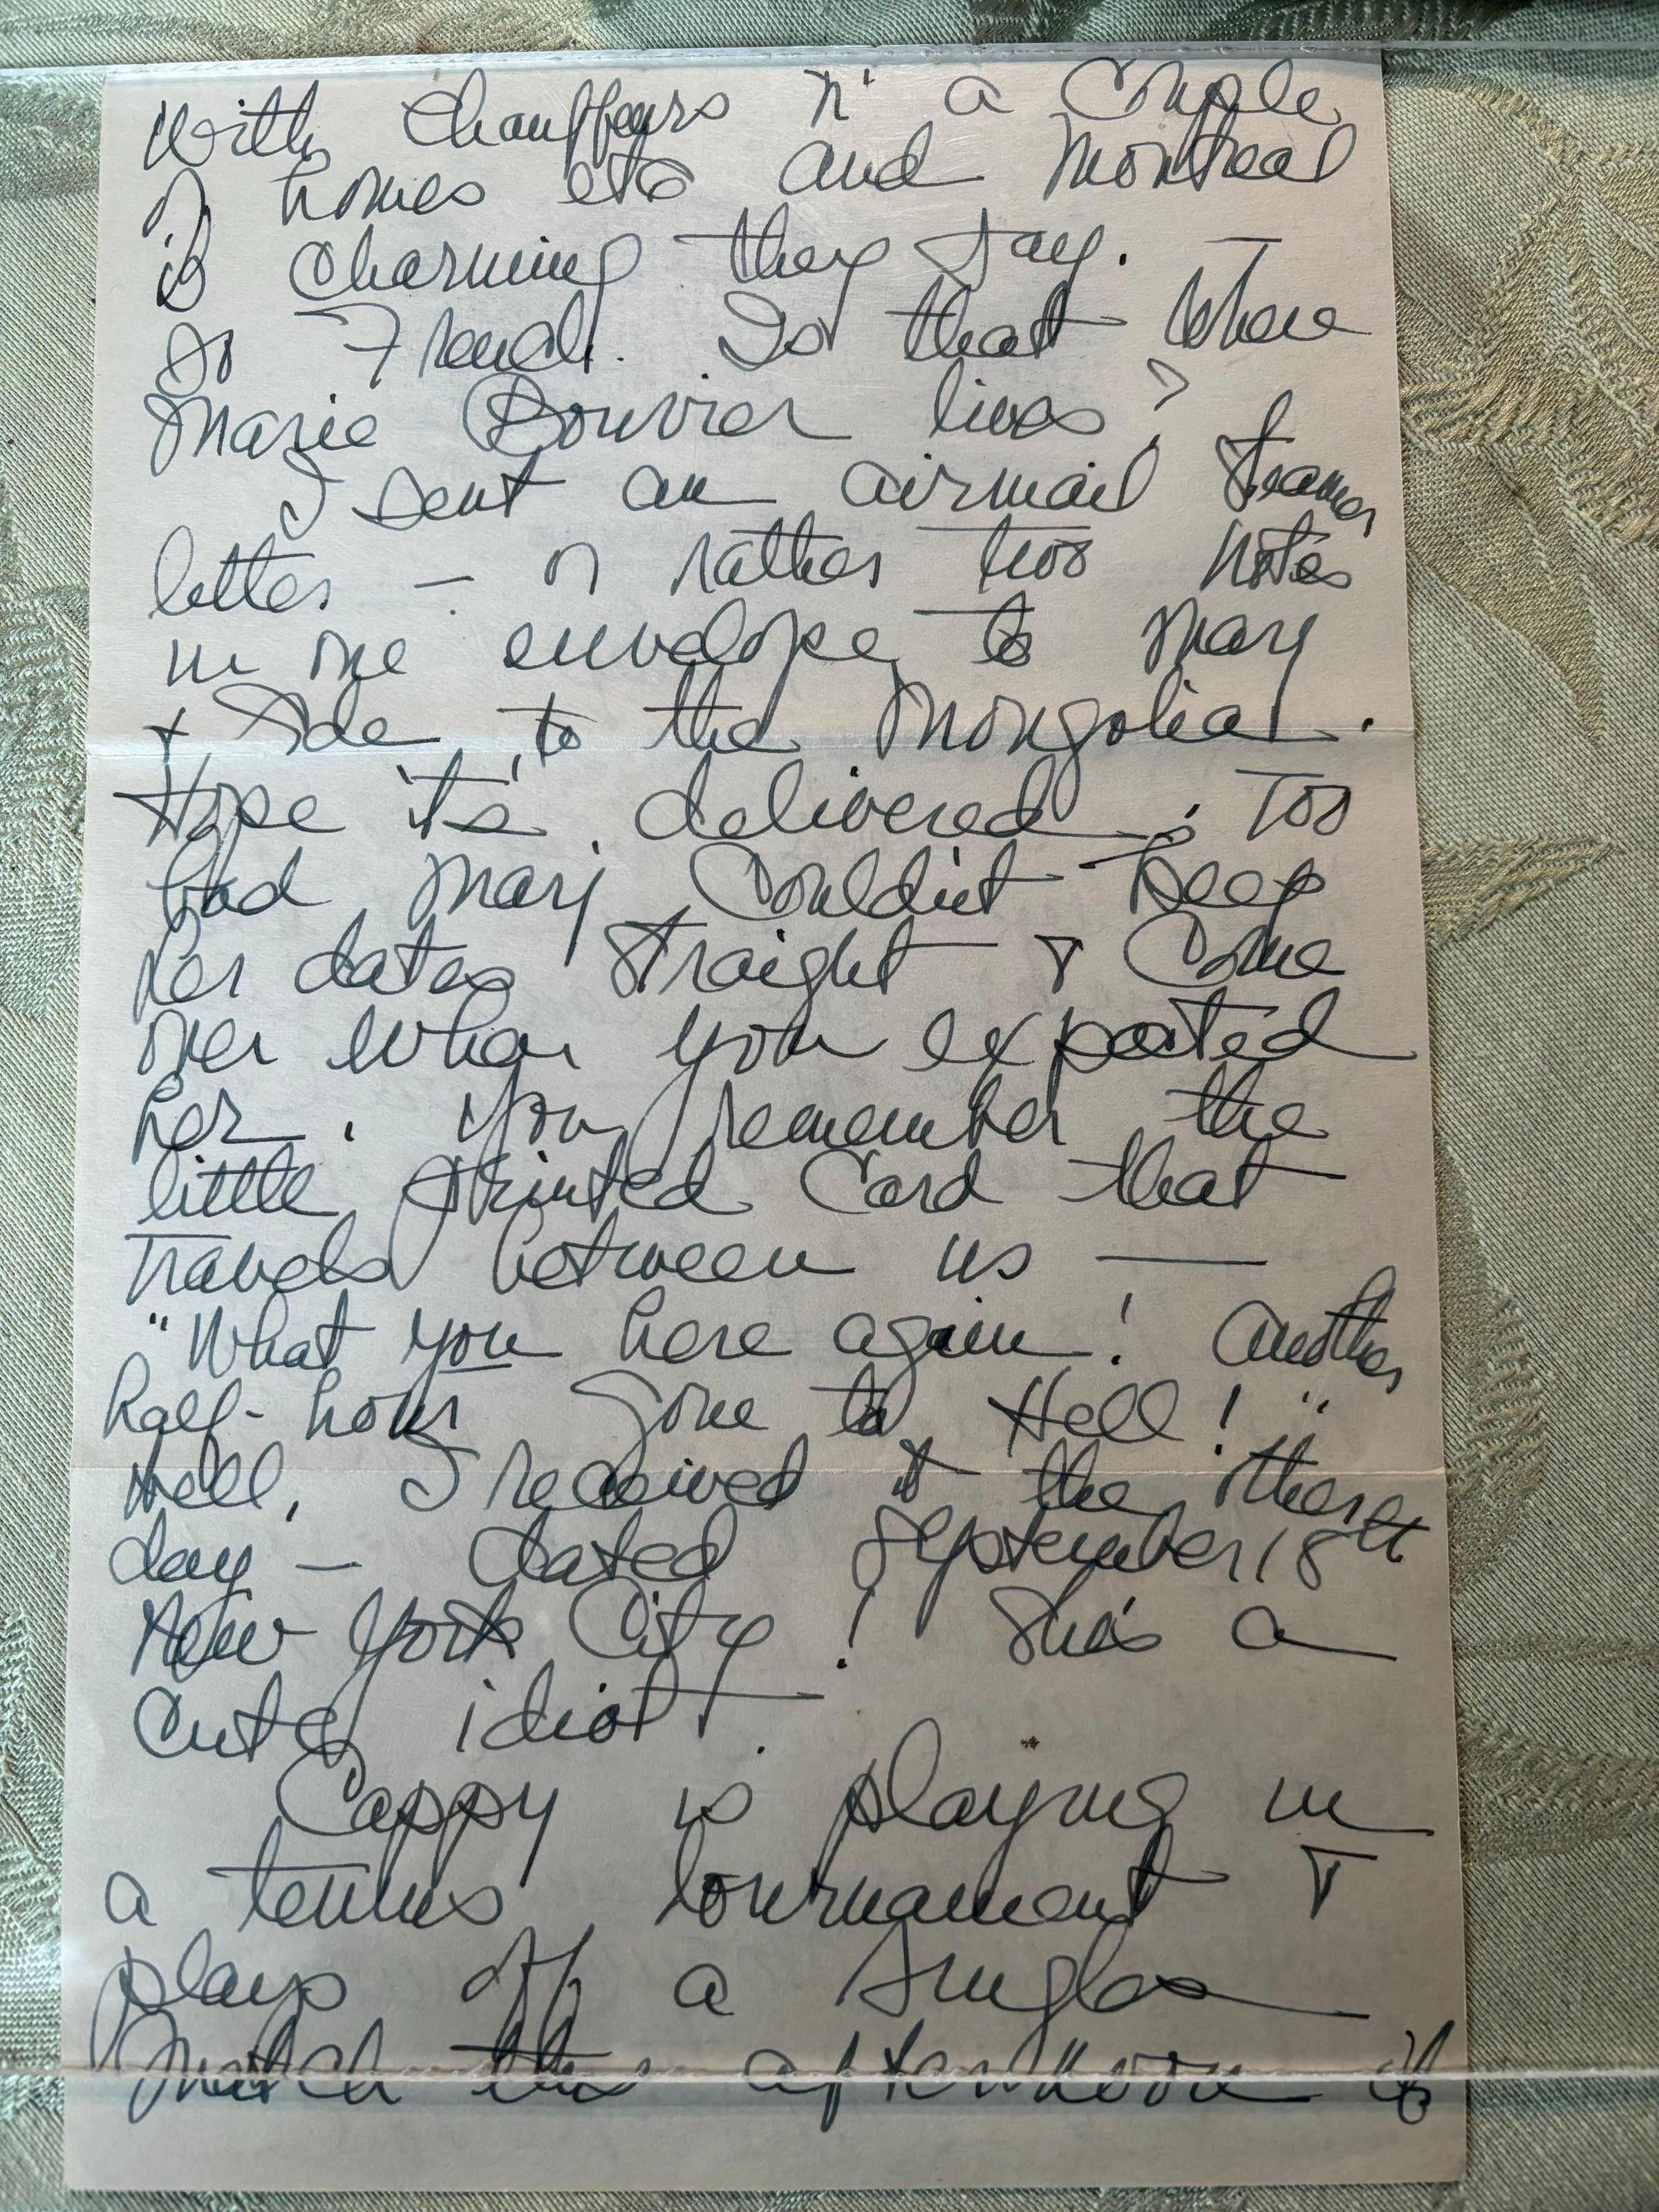 with chauffeurs n' a couple
of homes etc and Montreal
is charming they say. —
so French. Is that where
Marie Bouvier lives?
I sent an airmail steamer
letter — or rather two notes
in one envelope to Mary
+ Ade, to the Mongolia.
Hope it's delivered; Too
bad Marj couldn't keep
her dates straight & come
over when you expected
her. You remember the
little printed card that
travels between us —
"What you here again! Another
half-hour gone to Hell!"
Well, I received it the other
day — dated September 18th
New York City! She's a
cute idiot.
Cappy is playing in
a tennis tournament &
plays off a singles
match this afternoon if